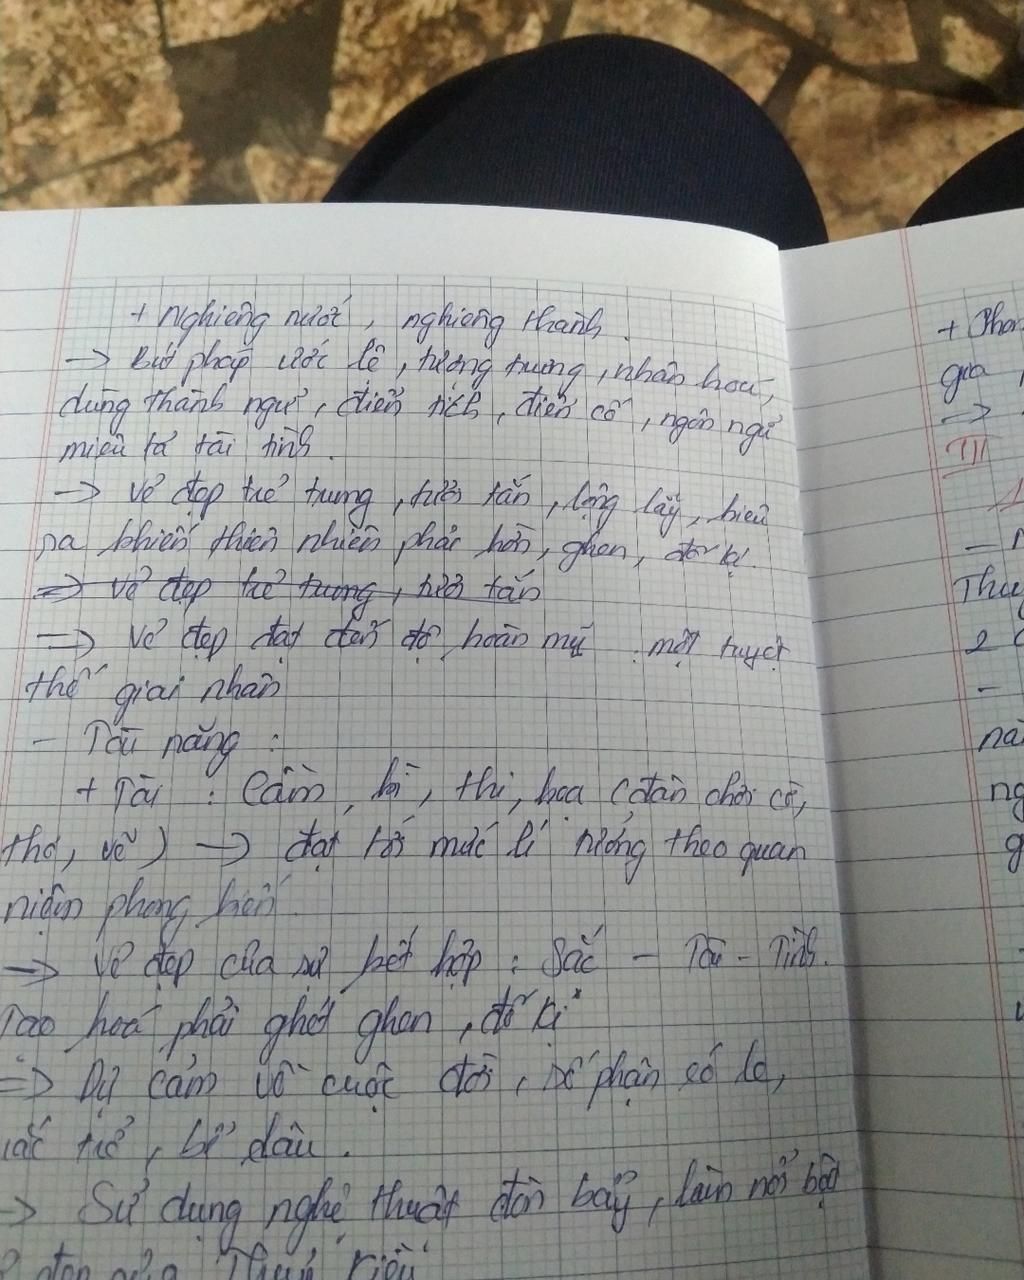 + Nghiêng nước, nghiêng thành.
→ Bút pháp ước lệ, tượng trưng, nhân hoá,
dùng thành ngữ, điển tích, điển cố, ngôn ngữ
miêu tả tài tình.
→ Vẻ đẹp trẻ trung, tươi tắn, lộng lẫy, hiêu
ra khiến thiên nhiên phải hờn, ghen, đố kị.
⇒ Vẻ đẹp trẻ trung, tươi tắn
⇒ Vẻ đẹp đạt đến độ hoàn mỹ : một tuyệt
thế giai nhân
- Tài năng :
+ Tài : Cầm, kì, thi, hoạ (đàn chơi cờ,
thơ, vẽ) → đạt tới mức lí tưởng theo quan
niệm phong kiến.
→ Vẻ đẹp của sự kết hợp : Sắc - Tài - Tình.
Tạo hoá phải ghét ghen, đố kị
⇒ Dự cảm về cuộc đời, số phận éo le,
trắc trở, bể dâu.
→ Sử dụng nghệ thuật đòn bẩy, làm nổi bật
đẹp của Thuý Kiều
+ Phon
qua
→
III
-
Thu
2
-
nà
ng
g